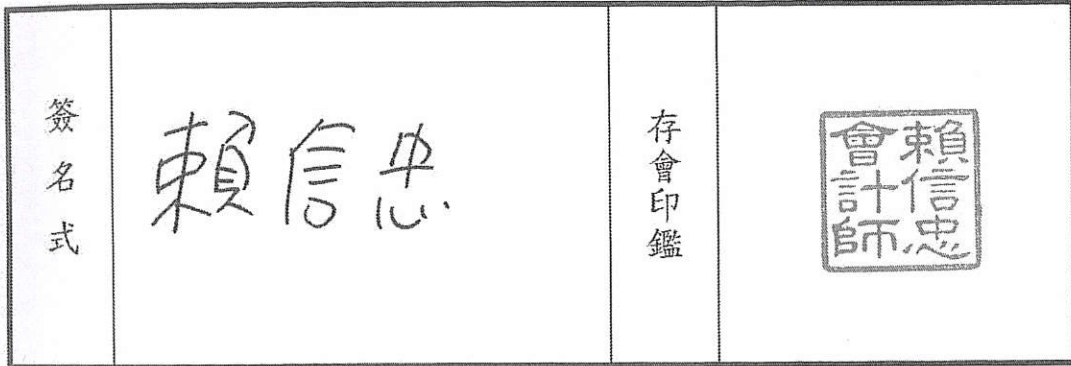 簽名式
賴信忠
存會印鑑
賴信忠
會計師